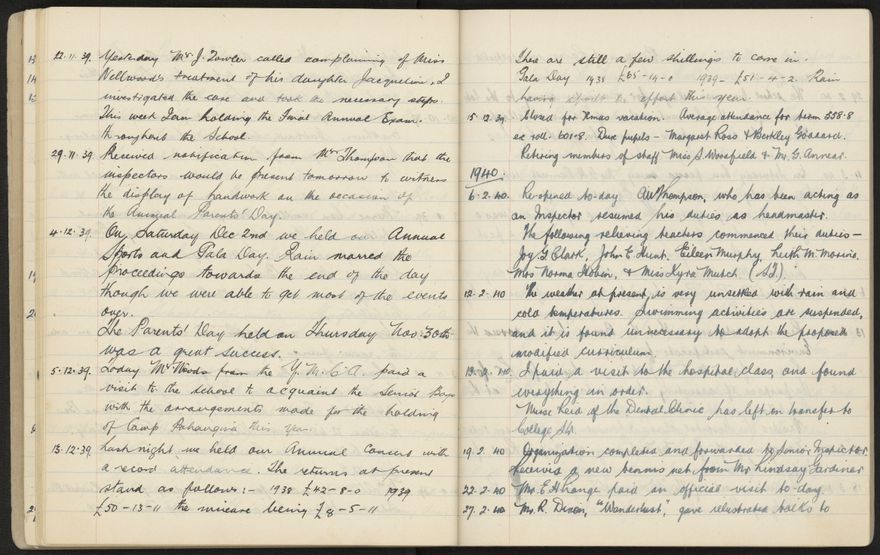 12.11.39. Yesterday Mr J. Fowler called complaining of Miss
Wellwood's treatment of his daughter Jacqueline. I
investigated the case and took the necessary steps.
This week I am holding the Final Annual Exam.
throughout the School.
29.11.39. Received notification from Mr Thompson that the
inspectors would be present tomorrow to witness
the display of handwork on the occasion of
the Annual Parents' Day.
4.12.39. On Saturday Dec 2nd we held our Annual
Sports and Gala Day. Rain marred the
proceedings towards the end of the day
though we were able to get most of the events
over.
The Parents' Day held on Thursday Nov. 30th
was a great success.
5.12.39. Today Mr Woods from the Y.M.C.A. paid a
visit to the school to acquaint the Senior Boys
with the arrangements made for the holding
of Camp this year.
13.12.39 Last night we held our Annual Concert with
a record attendance. The returns at present
stand as follows:- 1938 £42-8-0 1939
£50-13-11 the increase being £8-5-11
There are still a few shillings to come in.
Gala Day 1938 £65-14-0 1939- £51-4-2 Rain
having effort this year.
15.12.39. Closed for Xmas vacation. Average attendance for term 558.8
ex roll 601.8. Dux pupils - Margaret Ross & Berkley Goddard.
Retiring members of staff Miss J. Woodfield & Mr G. Annear.
1940.
6.2.40. Re-opened to-day. AW Thompson, who has been acting as
an Inspector resumed his duties as headmaster.
The following relieving teachers commenced their duties-
Joy G Clark, John E Hunt, Eileen Murphy, Keith M
Mrs Norma & Miss Lyra Mutch
12.2.40 The weather at present, is very unsettled with rain and
cold temperatures. Swimming activities are suspended,
and it is found unnecessary to adopt the proposed
modified curriculum.
I paid a visit to the hospital class, and found
everything in order.
Nurse Reid of the Dental Clinic has left on transfer to
College St.
19.2.40 Organization completed and forwarded to Senior Inspector.
Received a new tennis net from Mr Lindsay Gardiner
22.2.40 Mr. E H Lange paid an official visit to-day.
27.2.40 Mr. R. Dixon, "Wanderlust", gave illustrated talks to